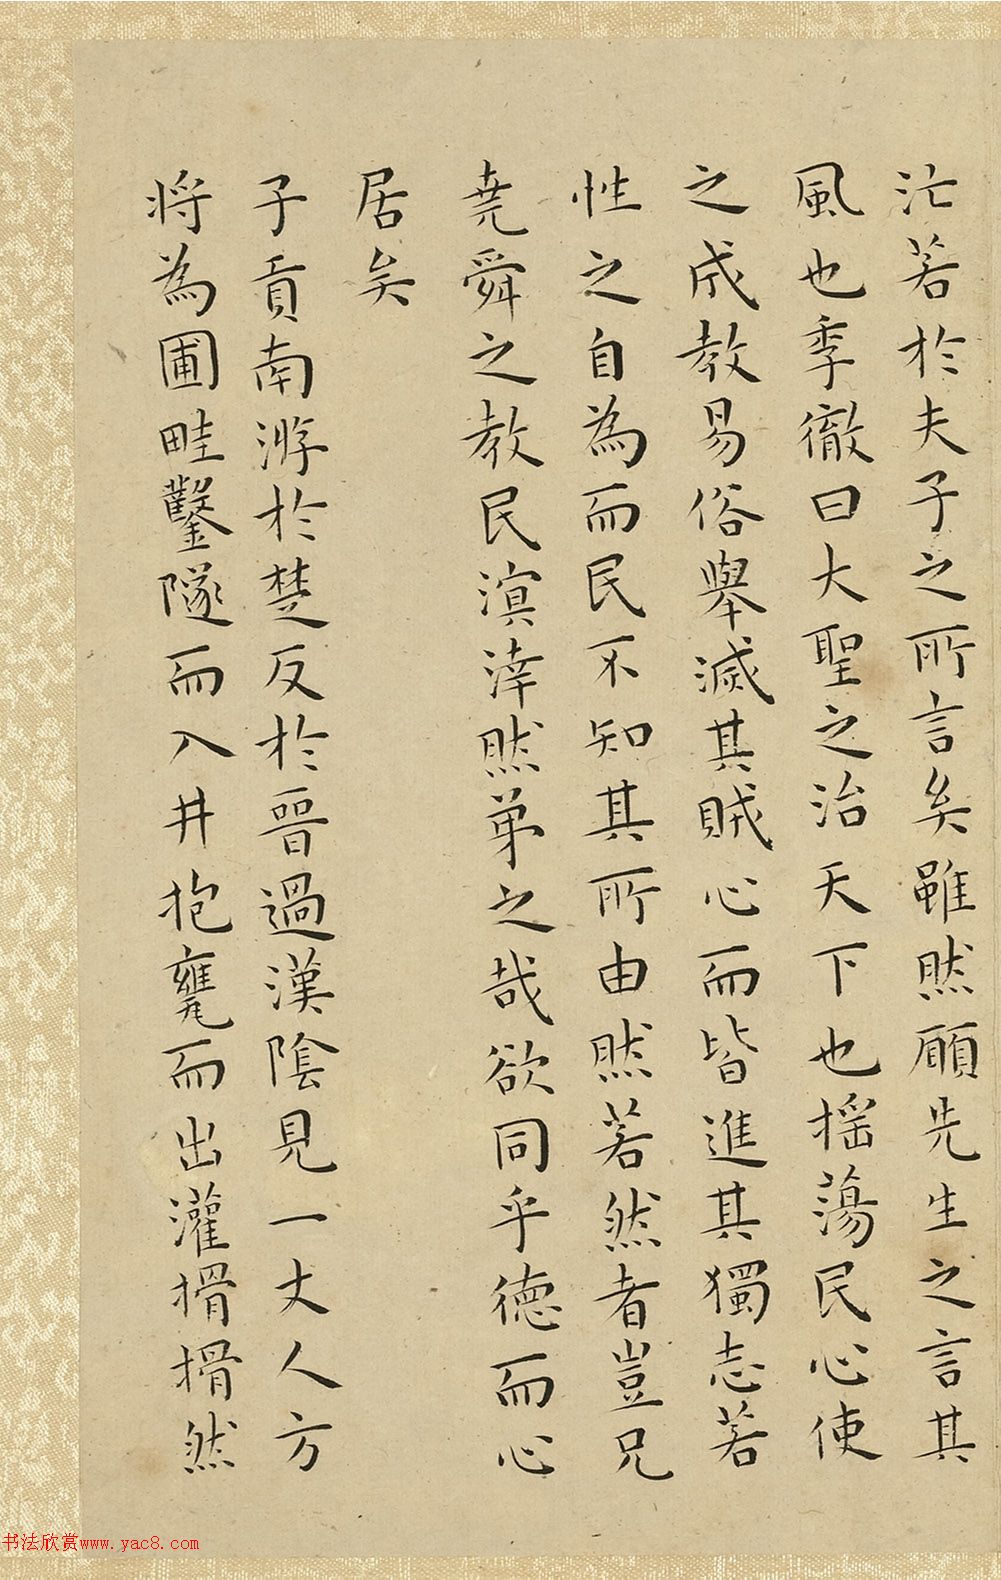 汒若於夫子之所言矣雖然願先生之言其
風也季徹曰大聖之治天下也揺蕩民心使
之成教易俗舉滅其賊心而皆進其獨志若
性之自為而民不知其所由然若然者豈兄
堯舜之教民溟涬然弟之哉欲同乎德而心
居矣
子貢南游於楚反於晉過漢陰見一丈人方
将為圃畦鑿隧而入井抱甕而出灌搰搰然
书法欣赏www.yac8.com